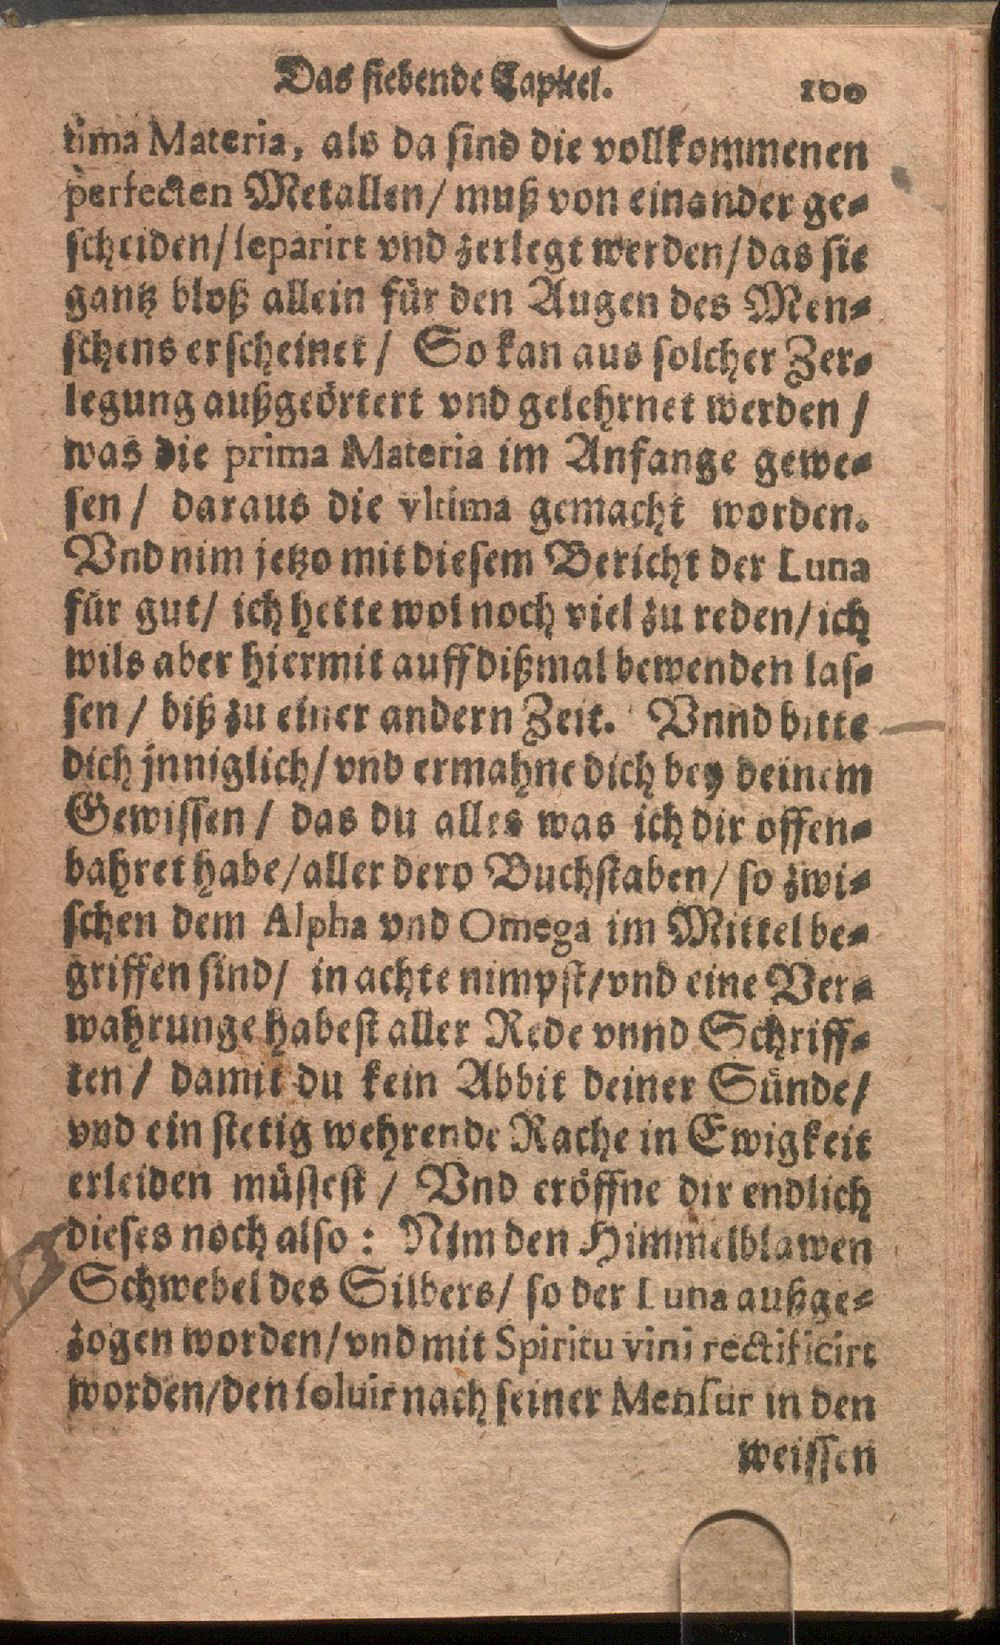 Das siebende Capittel. 100
tima Materia, als da sind die vollkommenen
perfecten Metallen/ muß von einander ge-
scheiden/ separirt vnd zerlegt werden/ das sie
gantz bloß allein für den Augen des Men-
schens erscheinet/ So kan aus solcher Zer-
legung außgeörtert vnd gelehrnet werden/
was die prima Materia im Anfange gewe-
sen/ daraus die vltima gemacht worden.
Vnd nim jetzo mit diesem Bericht der Luna
für gut/ ich hette wol noch viel zu reden/ ich
wils aber hiermit auff dißmal bewenden las-
sen/ biß zu einer andern Zeit. Vnnd bitte
dich jnniglich/ vnd ermahne dich bey deinem
Gewissen/ das du alles was ich dir offen-
bahret habe/ aller dero Buchstaben/ so zwi-
schen dem Alpha vnd Omega im Mittel be-
griffen sind/ in achte nimpst/ vnd eine Ver-
wahrunge habest aller Rede vnnd Schriff-
ten/ damit du kein Abbit deiner Sünde/
vnd ein stetig wehrende Rache in Ewigkeit
erleiden müssest/ Vnd eröffne dir endlich
dieses noch also: Nim den Himmelblawen
Schwebel des Silbers/ so der Luna außge-
zogen worden/ vnd mit Spiritu vini rectificirt
worden/ den soluir nach seiner Mensur in den
weissen